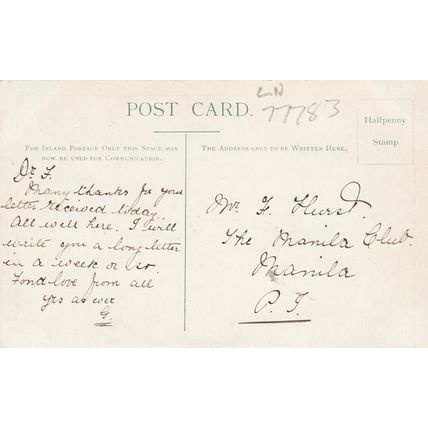 LN
77783
POST CARD.
Halfpenny
Stamp
FOR INLAND POSTAGE ONLY THIS SPACE MAY
NOW BE USED FOR COMMUNICATION.
THE ADDRESS ONLY TO BE WRITTEN HERE.
Dr F.
Many thanks for your
letter received today.
All well here. I will
write you a long letter
in a week or so.
Fond love from all
yrs as ever
G.
Mr. F. Hurst.
The Manila Club.
Manila
P. I.